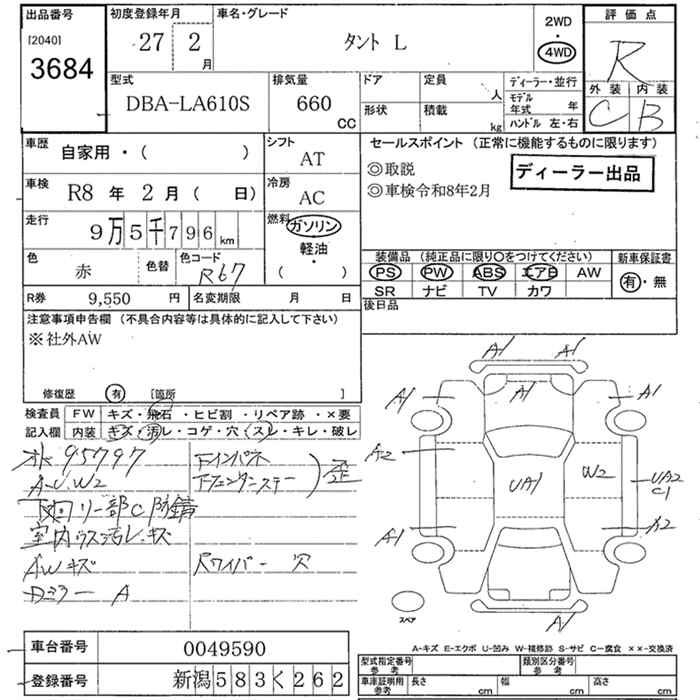 出品番号 初度登録年月 車名・グレード 2WD 評価点
[2040] 27 2 月 タント L 4WD R
3684
型式 排気量 ドア 定員 人 ディーラー・並行 外装 内装
DBA-LA610S 660 CC 形状 積載 kg モデル年式 年 C B
ハンドル 左・右
車歴 自家用・( ) シフト AT セールスポイント (正常に機能するものに限ります)
◎取説 ディーラー出品
車検 R8 年 2 月 ( 日) 冷房 AC ◎車検令和8年2月
走行 9万5千796 km 燃料 ガソリン
軽油・
( )
色 赤 色替 色コード R67 装備品 (純正品に限り○をつけてください) 新車保証書
PS PW ABS エアB AW 有・無
R券 9,550 円 名変期限 月 日 SR ナビ TV カワ
注意事項申告欄 (不具合内容等は具体的に記入して下さい) 後日品
※社外AW
修復歴 有 [箇所 ]
検査員 FW キズ・飛石・ヒビ割・リペア跡・×要
記入欄 内装 キズ・汚レ・コゲ・穴・スレ・キレ・破レ
95797 下インパネ
A・U・W2
下回リ一部C防錆
室内ウス汚レ・キズ
AWキズ Rワイパー 穴
Dミラー A
A1 A1
A1 A1 A1
A2 UA1 W2 UA2
C1
A1 A2
スペア A1
A-キズ E-エクボ U-凹み W-補修跡 S-サビ C-腐食 ××-交換済
車台番号 0049590
登録番号 新潟583く262
型式指定番号 参考 類別区分番号 参考
車庫証明用 参考 長さ cm 幅 cm 高さ cm